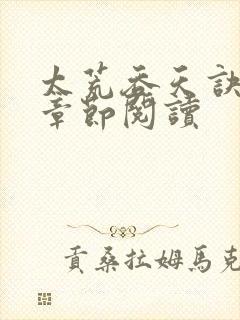 太荒吞天訣
章節閱讀
貢桑拉姆馬克